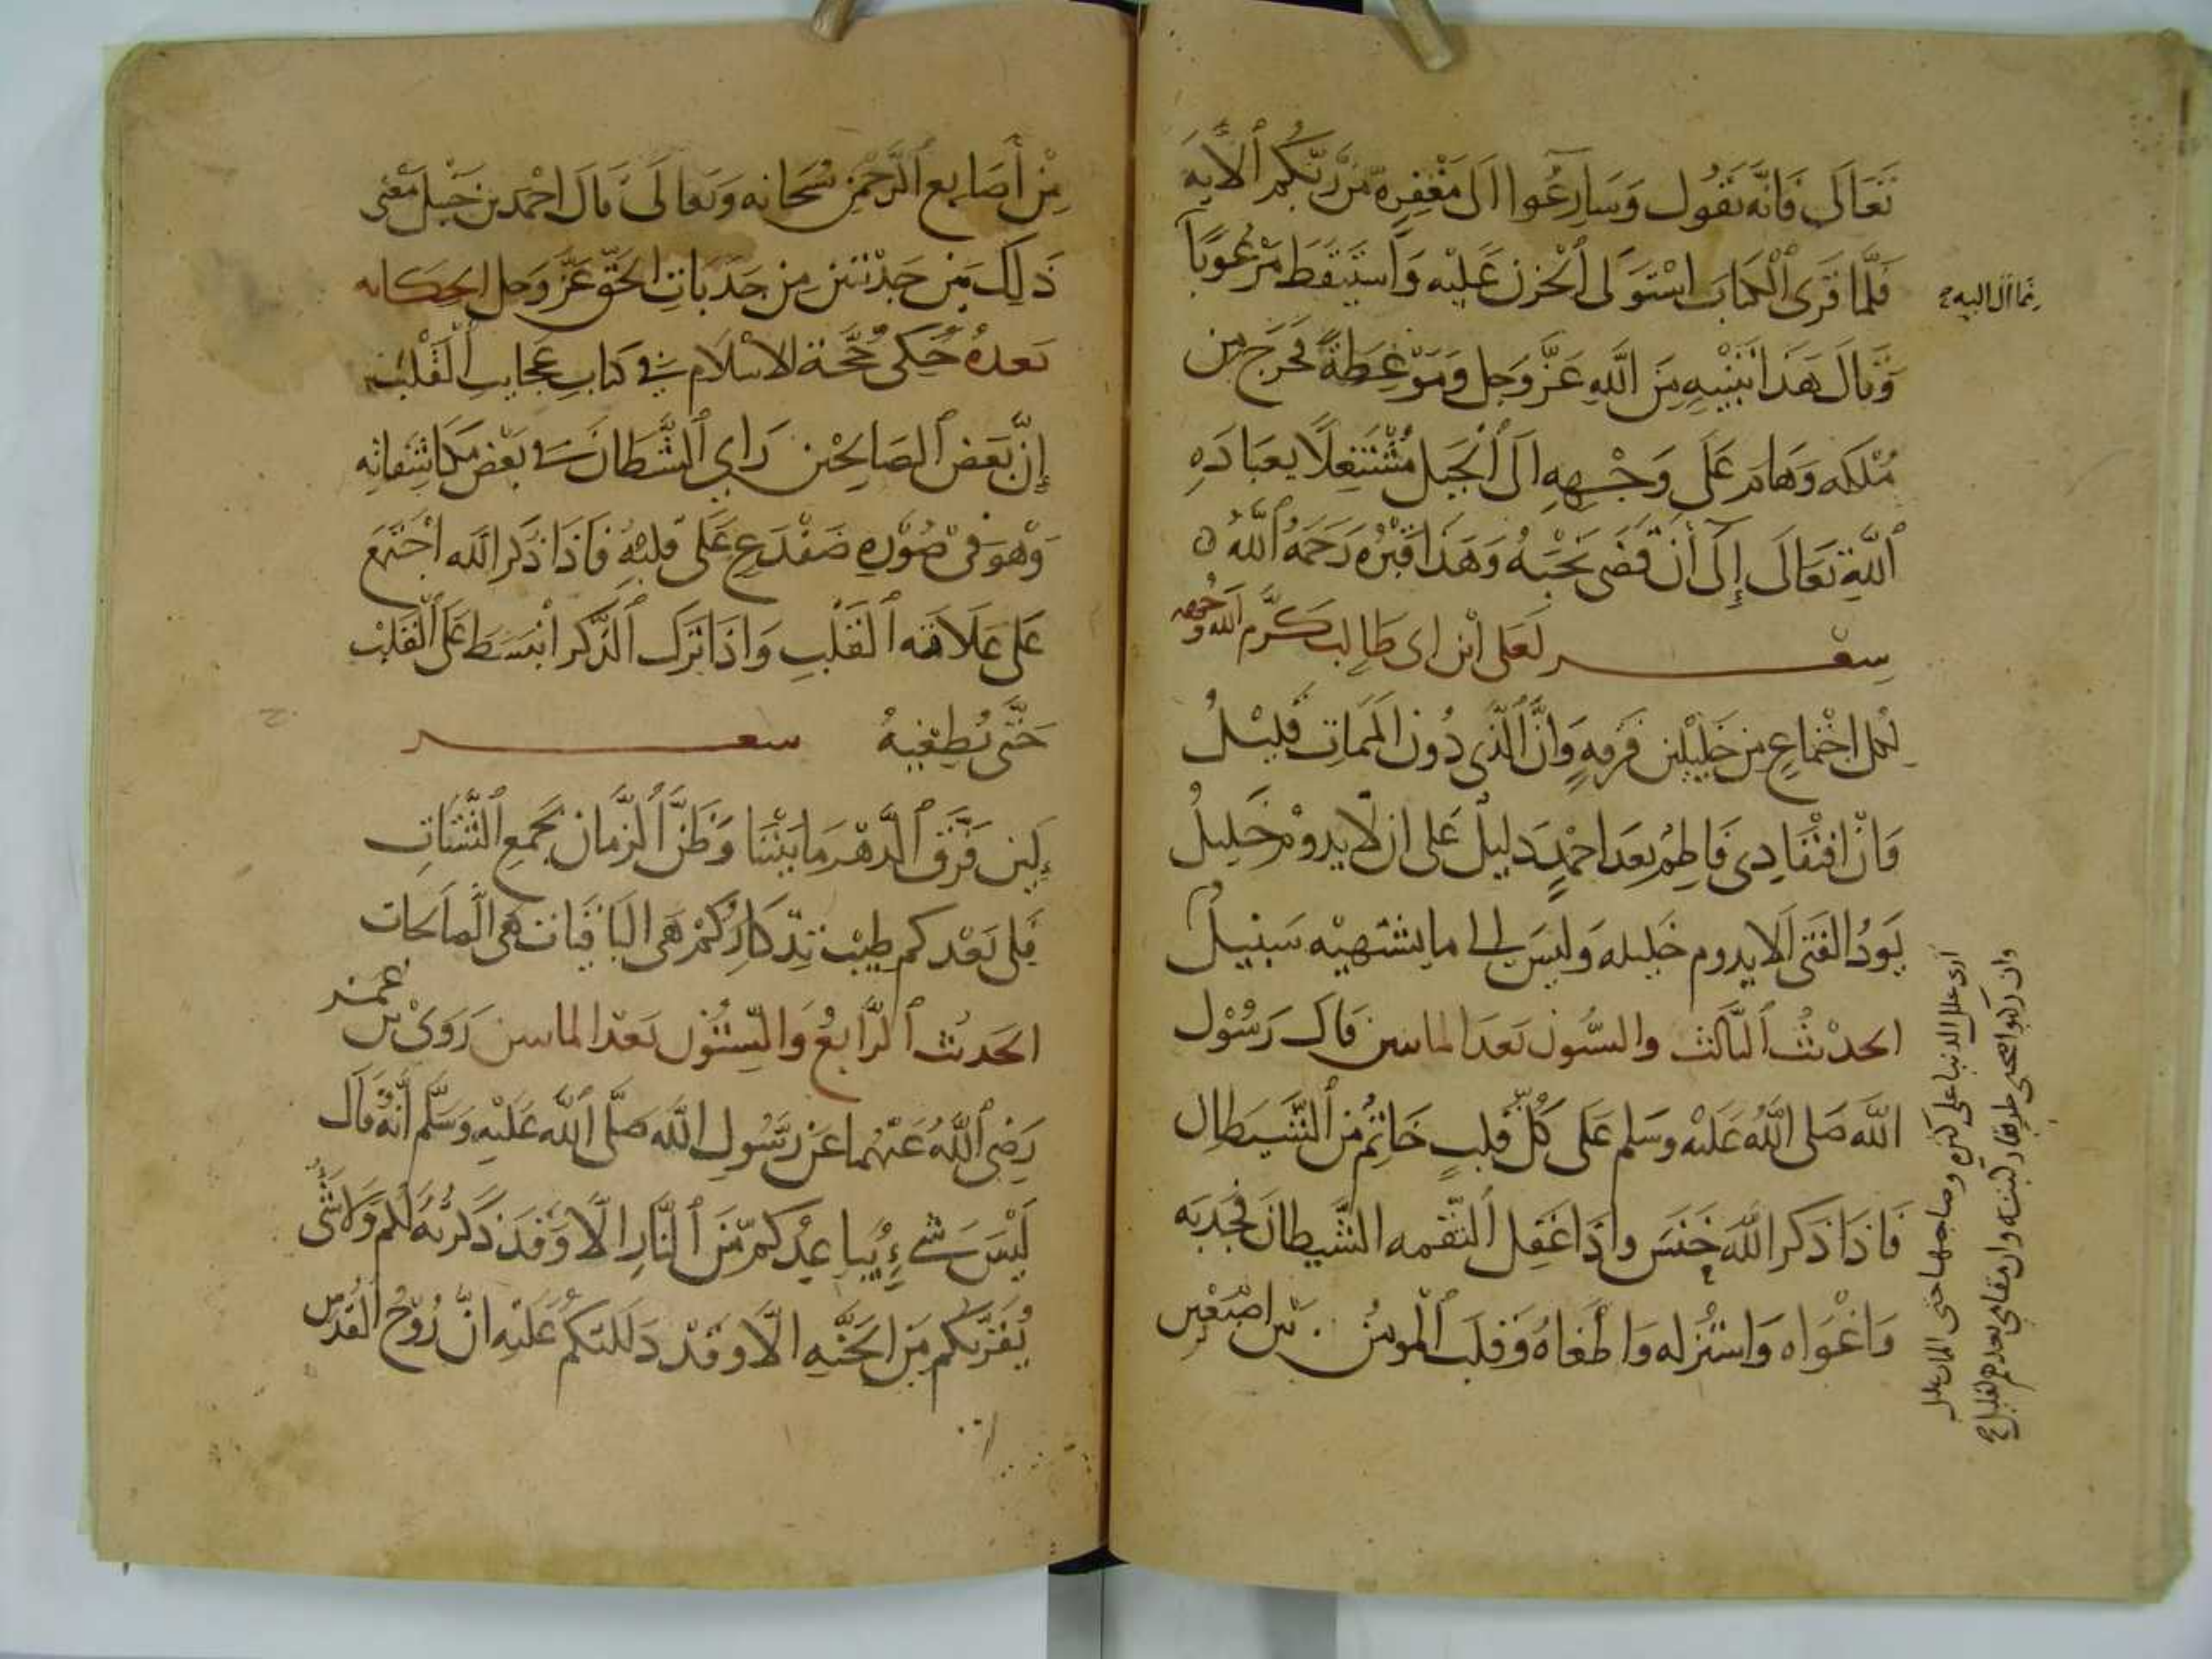 تَعَالَى فَانَّه يَقُول وَسَارِعُوا الَى مَغْفِرة مّن رَّبّكُم الآيه
فَلَّما قَرى الْكتابَ اسْتَولَى الْحُزن عَليْه وَاسْتيقَظ مَرْعُوبًا
وَقال هَذا تَنْبِيه مِنَ اللَّهِ عَزَّ وَجل وَمَوْعِظَة فَخرَج مِن
مُلْكه وَهَام عَلَى وَجْهِهِ الَى الْجَبل مُشْتَغِلًا بعبَادَةِ
اللَّهِ تعَالَى إِلَى أَنْ قَضَى نَحْبَهُ وَهَذا قَبْرُه رَحمَهُ اللَّهُ
سِعْر لعَلى ابْن ابى طَالب كَرَّم الله وَجْهه
لكل اجْتماعٍ مِن خَلِيْلين فُرقهٍ وَانَّ الَّذي دُون الْمَمات قَليْلُ
وَانْ افْتقَادِى فَاطِمُ بَعدَ احْمدٍ دَليلٌ عَلى ان لا يدوْم خَليلُ
يَودُ الفَتى الا يدوم خليله وَليسَ الى ما يشتهيْه سَبيلُ
الحدْيثُ الثَالث والستُون بَعدَ الماتين قَال رَسُوْل
اللَّه صَلى اللَّهُ عَليْه وسَلم عَلَى كُلّ قلبٍ خَاتمٌ من الشَّيطان
فَاذا ذكر اللَّهَ خَنسَ واذَا غَفل التَقمه الشَّيطان فجذبه
وَاغْوَاه وَاسْتنزله وَاطْغاهُ وَقلب المومنُ بَين اصْبَعْين
مما آل اليه صح
ارى علل الدنيا على كثيره وصاحبها حتى الممات عليل
وان مقامى بعدهم لقليل صح
مِنْ أَصَابع الرَّحْمن سُبحانه وَتعَالَى قَالَ احْمَد بن حَنْبل مَعْنى
ذَلِكَ بَين جَذْبَتين مِن جَذَبَاتِ الحَقّ عَزَّ وَجل الحكايه
بَعدهُ حُكى حُجَّة الاسْلام فى كتابِ عَجَايب الْقَلْب
إنَّ بَعْض الصَالِحْين رَاي الشَّيطان فى بَعْض مكاشفاته
وَهْوَ فى صُوْرهِ ضَفْدع عَلى قَلبْهِ فَاذَا ذكر اللَه اجْتَمع
عَلى عَلاقه الْقَلْبِ وَاذا تَرَك الذّكر انْبسَطَ عَلَى الْقَلْب
حَتَّى يُطغِيهُ سعر
لَئن فَرَّق الدَّهْر مَا بَيْننا وَظَنَّ الزمان بجَمعِ الشَّتاتِ
فَلى بَعْدكم طيْب تِذكارُكُمْ هَى البَاقيات هى الصالحات
الحَديْث الرَّابِعُ وَالسِّتّوْن بَعْدَ الماتين رَوَىْ بن عُمر
رَضِى اللَّهُ عَنْهُما عَن رسُولِ اللَّه صَلَّى اللَّه عَليْه وَسَلَّم أنَّهُ قَال
لَيْسَ شىءٍ يُباعِدُكم مّنَ النَّارِ الَّا وَقَد ذكرته لَكُم وَلا شَى
يُقَرّبكم مّنَ الجَنَّهِ الَّا وقَدْ دَلَلتكُم عَليْهِ انَّ رُوْحُ القُدْس